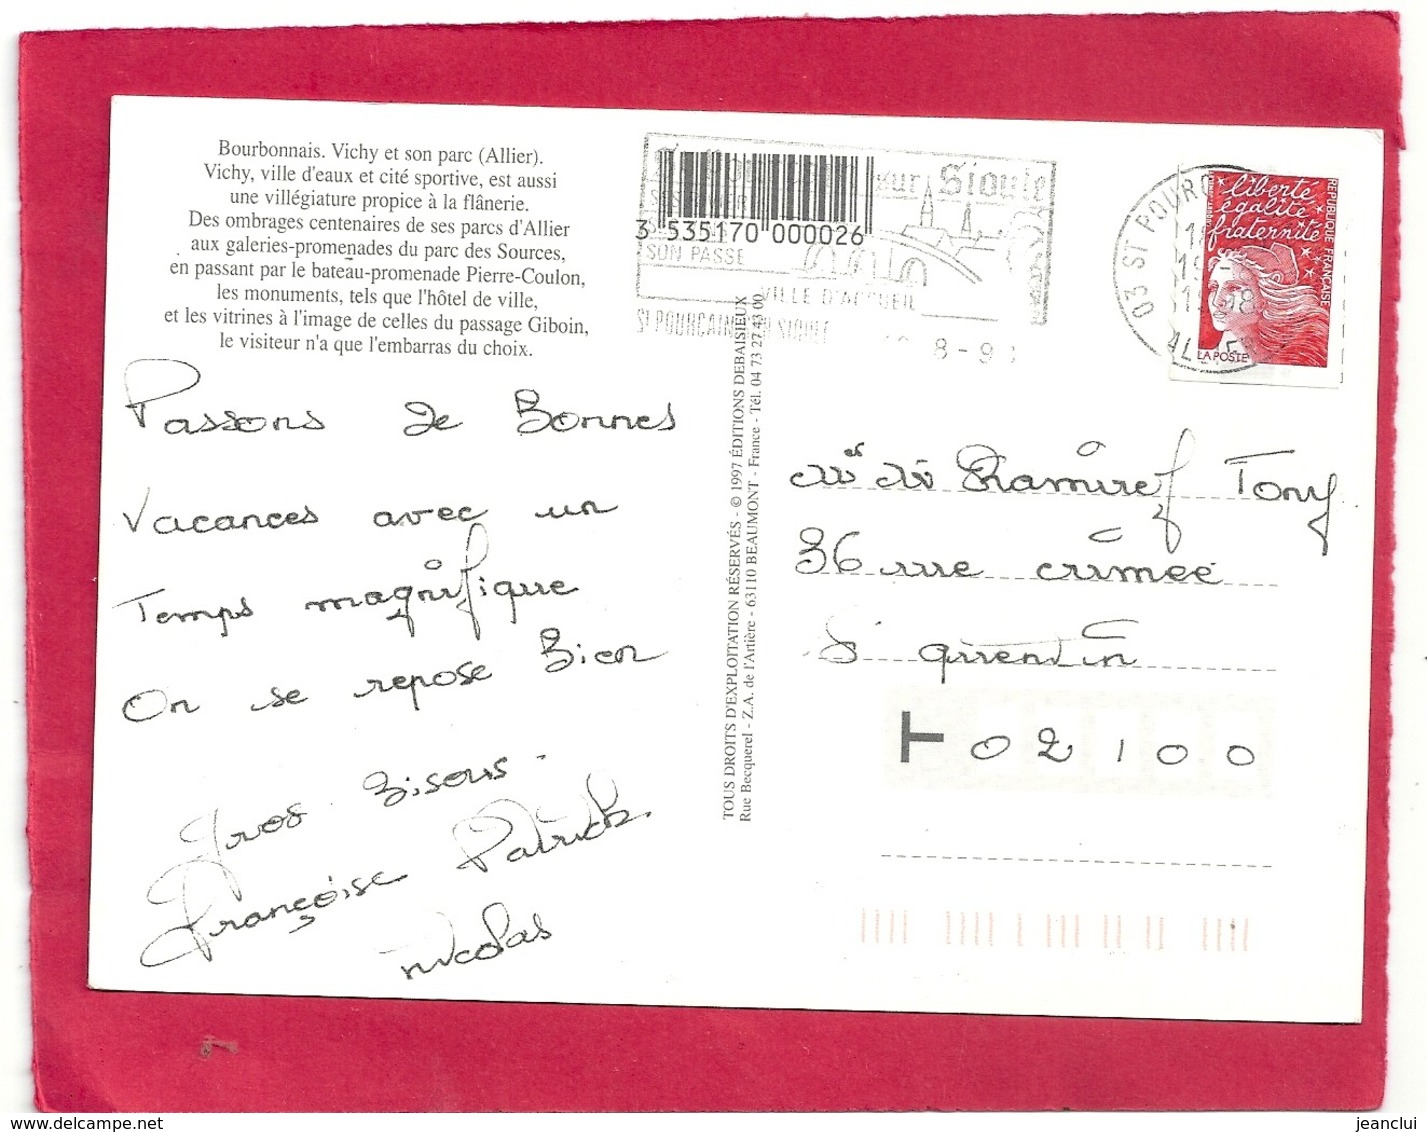 Bourbonnais. Vichy et son parc (Allier).
Vichy, ville d'eaux et cité sportive, est aussi
une villégiature propice à la flânerie.
Des ombrages centenaires de ses parcs d'Allier
aux galeries-promenades du parc des Sources,
en passant par le bateau-promenade Pierre-Coulon,
les monuments, tels que l'hôtel de ville,
et les vitrines à l'image de celles du passage Giboin,
le visiteur n'a que l'embarras du choix.
Passons de Bonnes
Vacances avec un
Temps magnifique
On se repose Bien
Gros Bisous.
Françoise Patrick.
Nicolas
TOUS DROITS D'EXPLOITATION RÉSERVÉS - © 1997 ÉDITIONS DEBAISIEUX
Rue Becquerel - Z.A. de l'Artière - 63110 BEAUMONT - France - Tél. 04 73 27 43 00
sur Sioule
3 535170 000026
SON PASSÉ
VILLE D'ACCUEIL
ST POURCAIN SIOULE
8-9
03 ST POURC
18
19-
18
ALLIER
liberté
égalité
fraternité
RÉPUBLIQUE FRANÇAISE
LA POSTE
Ramiref Tony
36 rue crimée
St quentin
T 02100
jeanclui
www.delcampe.net